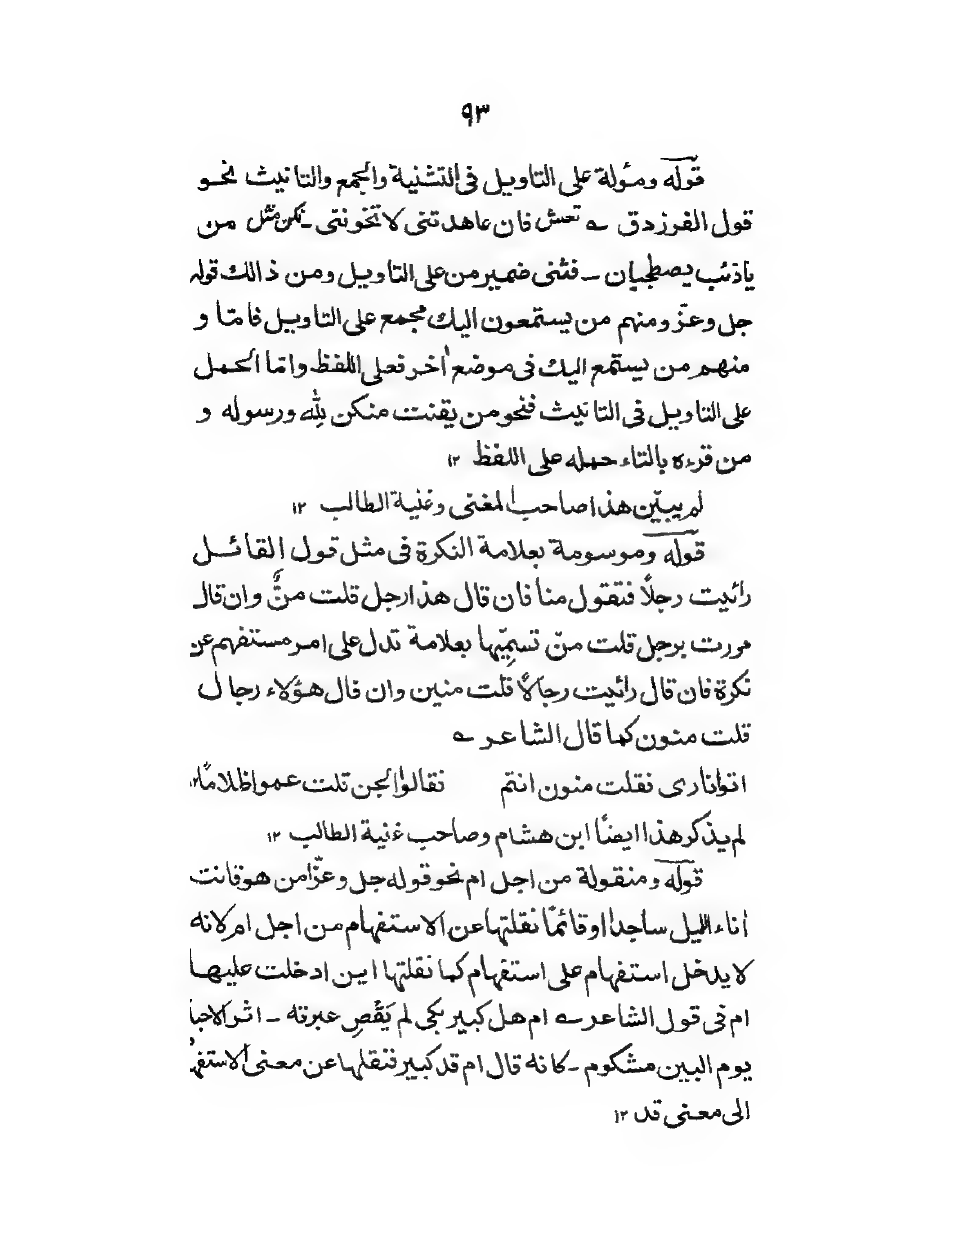 ٩٣
قوله ومؤلة على التاويل فى التثنية والجمع والتانيث نحو
قول الفرزدق ؎ تعش فان عاهدتنى لا تخوننى ـ نكن مثل من
ياذئب يصطحبان ــ فثنى ضمير من على التاويل ومن ذالك قوله
جل وعزّ ومنهم من يستمعون اليك فجمع على التاويل فامّا و
منهم من يستمع اليك فى موضع اٰخر فعلى اللفظ وامّا الحمل
على التاويل فى التانيث فنحو من يقنت منكن لِلّٰه ورسوله و
من قرءه بالتاء حمله على اللفظ ١٢
لم يبيّن هذا صاحب المغنى وغنية الطالب ١٢
قوله وموسومة بعلامة النكرة فى مثل قول القائل
رائيت رجلاً فتقول منا فان قال هذا رجل قلت منٌّ وان قال
مررت برجل قلت منّ تسمِّيها بعلامة تدل على امر مستفهم عن
نكرة فان قال رائيت رجالاً قلت منين وان قال هؤلاء رجال
قلت منون كما قال الشاعر ؎
اتوا نارى فقلت منون انتم فقالوا الجن قلت عموا ظلامًا ١٢
لم يذكر هذا ايضًا ابن هشام وصاحب غنية الطالب ١٢
قوله ومنقولة من اجل ام نحو قوله جل وعزّ امن هو قانت
اٰناء الليل ساجدا وقائمًا نقلتها عن الاستفهام من اجل ام لانه
لا يدخل استفهام على استفهام كما نقلتها اين ادخلت عليها
ام فى قول الشاعر ؎ ام هل كبير بكى لم يَقْضِ عبرته ــ اثر الاحبا
يوم البين مشكوم ــ كانه قال ام قد كبير فنقلها عن معنى الاستفها
الى معنى قد ١٢